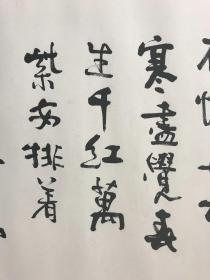 寒盡覺春
生千红萬
紫安排着